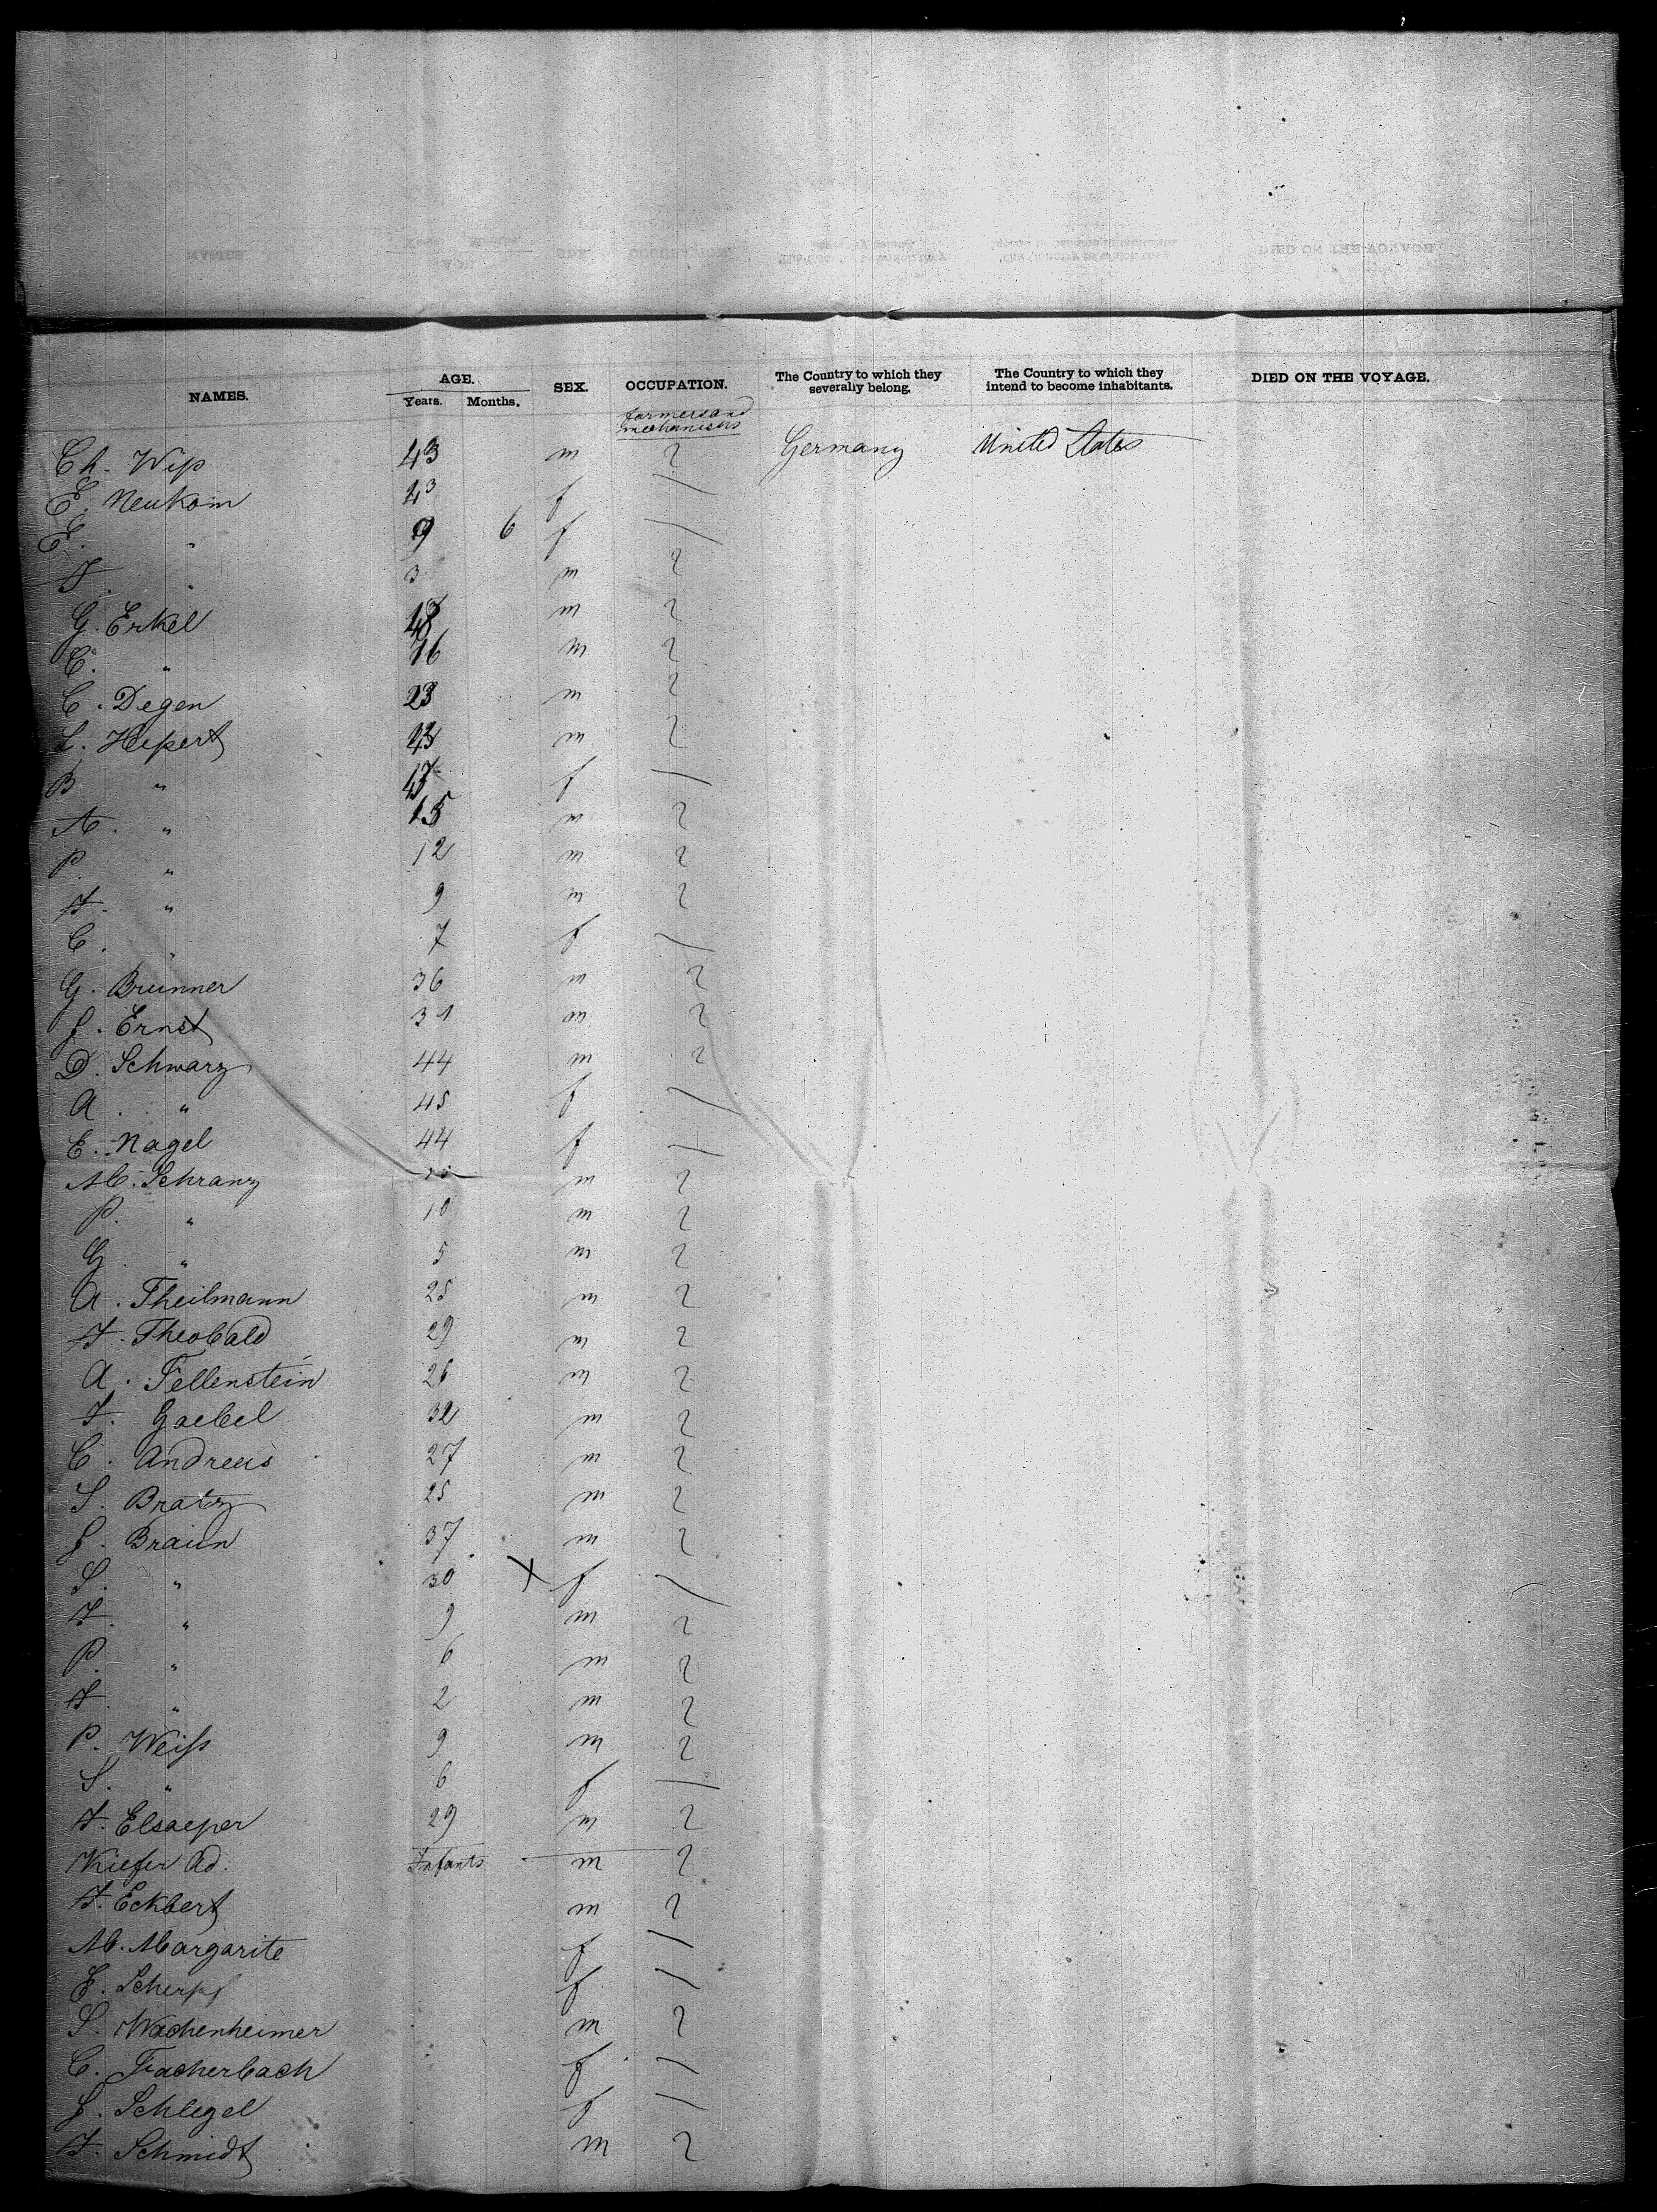 NAMES. AGE. Years. Months. SEX. OCCUPATION. The Country to which they severally belong. The Country to which they intend to become inhabitants. DIED ON THE VOYAGE.
farmers and mechanics
Ch. Wiß 43 m 2 Germany United States
E. Neukom f /
E. " 9 6 f /
F. " 3 m 2
G. Erkel m 2
C. " 16 m 2
C. Degen 23 m 2
L. Heßert m 2
B " f /
A. " 15 m 2
P. " 12 m 2
F. " 9 m 2
C. " 7 f /
G. Brunner 36 m 2
J. Ernst 31 m 2
D. Schwarz 44 m 2
A. " 45 f /
E. Nagel 44 f /
M. Schranz m 2
P. " 10 m 2
G. " 5 m 2
A. Theilmann 25 m 2
F. Theobald 29 m 2
A. Fellenstein 26 m 2
F. Gaebel 32 m 2
C. Andrees 27 m 2
S. Bratz 25 m 2
J. Braun 37 m 2
S. " 30 X f /
F. " 9 m 2
P. " 6 m 2
F. " 2 m 2
P. Weiß 9 m 2
S. " 6 f /
F. Elsaeßer 29 m 2
Kiefer Ad. Infants m 2
F. Eckbert m 2
M. Margarite f /
E. Scherpf f /
S. Wachenheimer m 2
C. Facherbach f /
J. Schlegel f /
F. Schmidt m 2